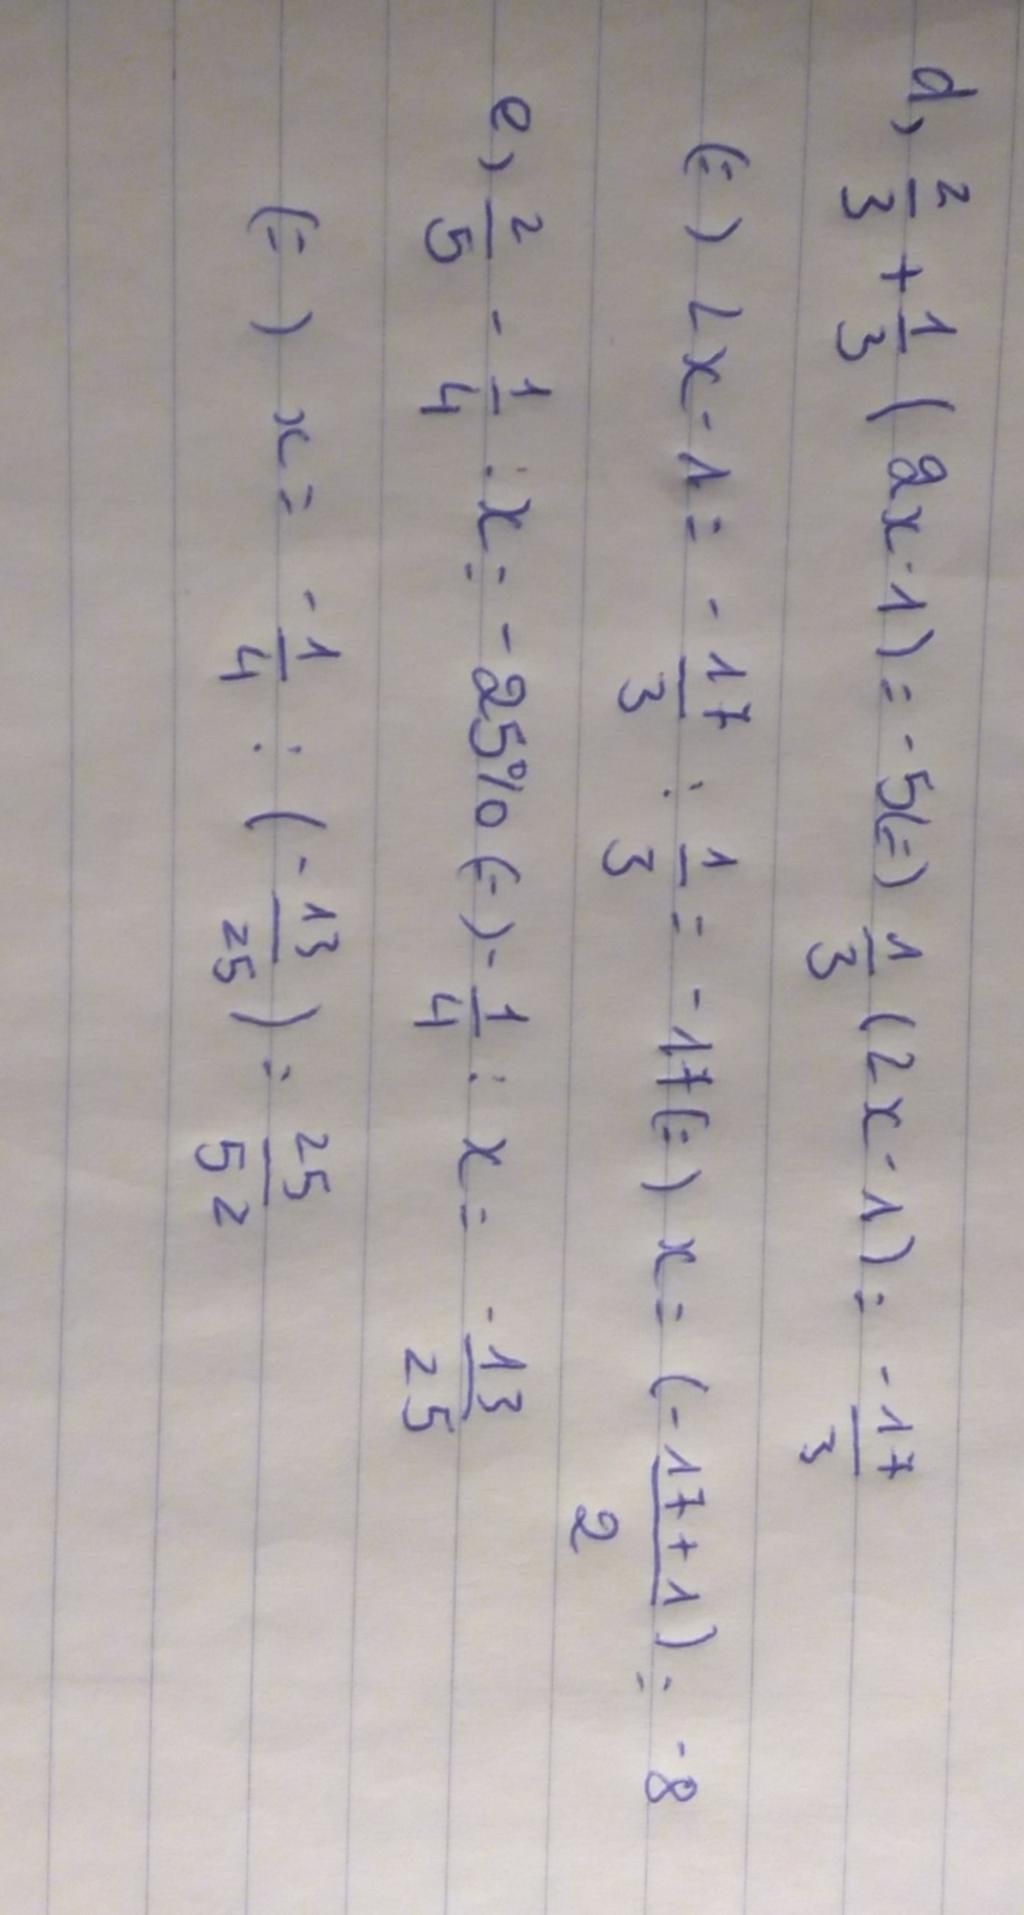 d, 2/3 + 1/3 (2x-1) = -5 (=) 1/3 (2x-1) = -17/3
(=) 2x-1 = -17/3 : 1/3 = -17 (=) x = (-17+1)/2 = -8
e, 2/5 - 1/4 : x = -25% (=) -1/4 : x = -13/25
(=) x = -1/4 : (-13/25) = 25/52